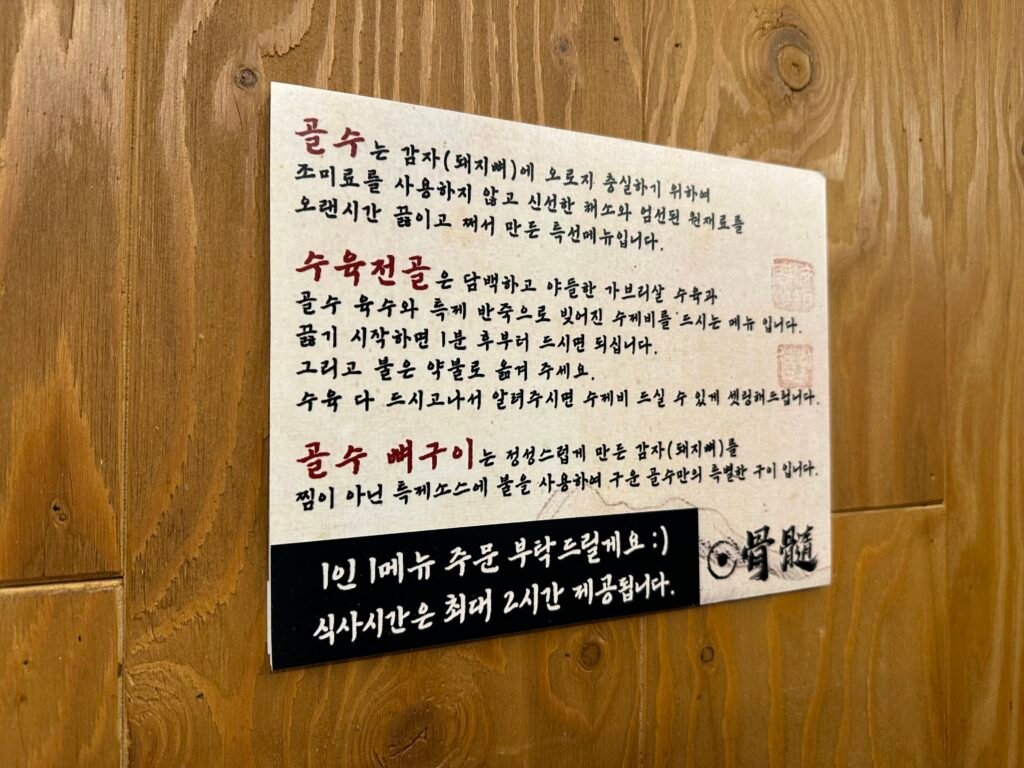 골수는 감자(돼지뼈)에 오로지 충실하기 위하여
조미료를 사용하지 않고 신선한 채소와 엄선된 원재료를
오랜시간 끓이고 쪄서 만든 특선메뉴입니다.
수육전골은 담백하고 야들한 가브리살 수육과
골수 육수와 특제 반죽으로 빚어진 수제비를 드시는 메뉴 입니다.
끓기 시작하면 1분 후부터 드시면 되십니다.
그리고 불은 약불로 옮겨 주세요.
수육 다 드시고나서 알려주시면 수제비 드실 수 있게 셋팅해드립니다.
골수 뼈구이는 정성스럽게 만든 감자(돼지뼈)를
찜이 아닌 특제소스에 불을 사용하여 구운 골수만의 특별한 구이 입니다.
1인 1메뉴 주문 부탁드릴게요 :)
식사시간은 최대 2시간 제공됩니다.
骨髓